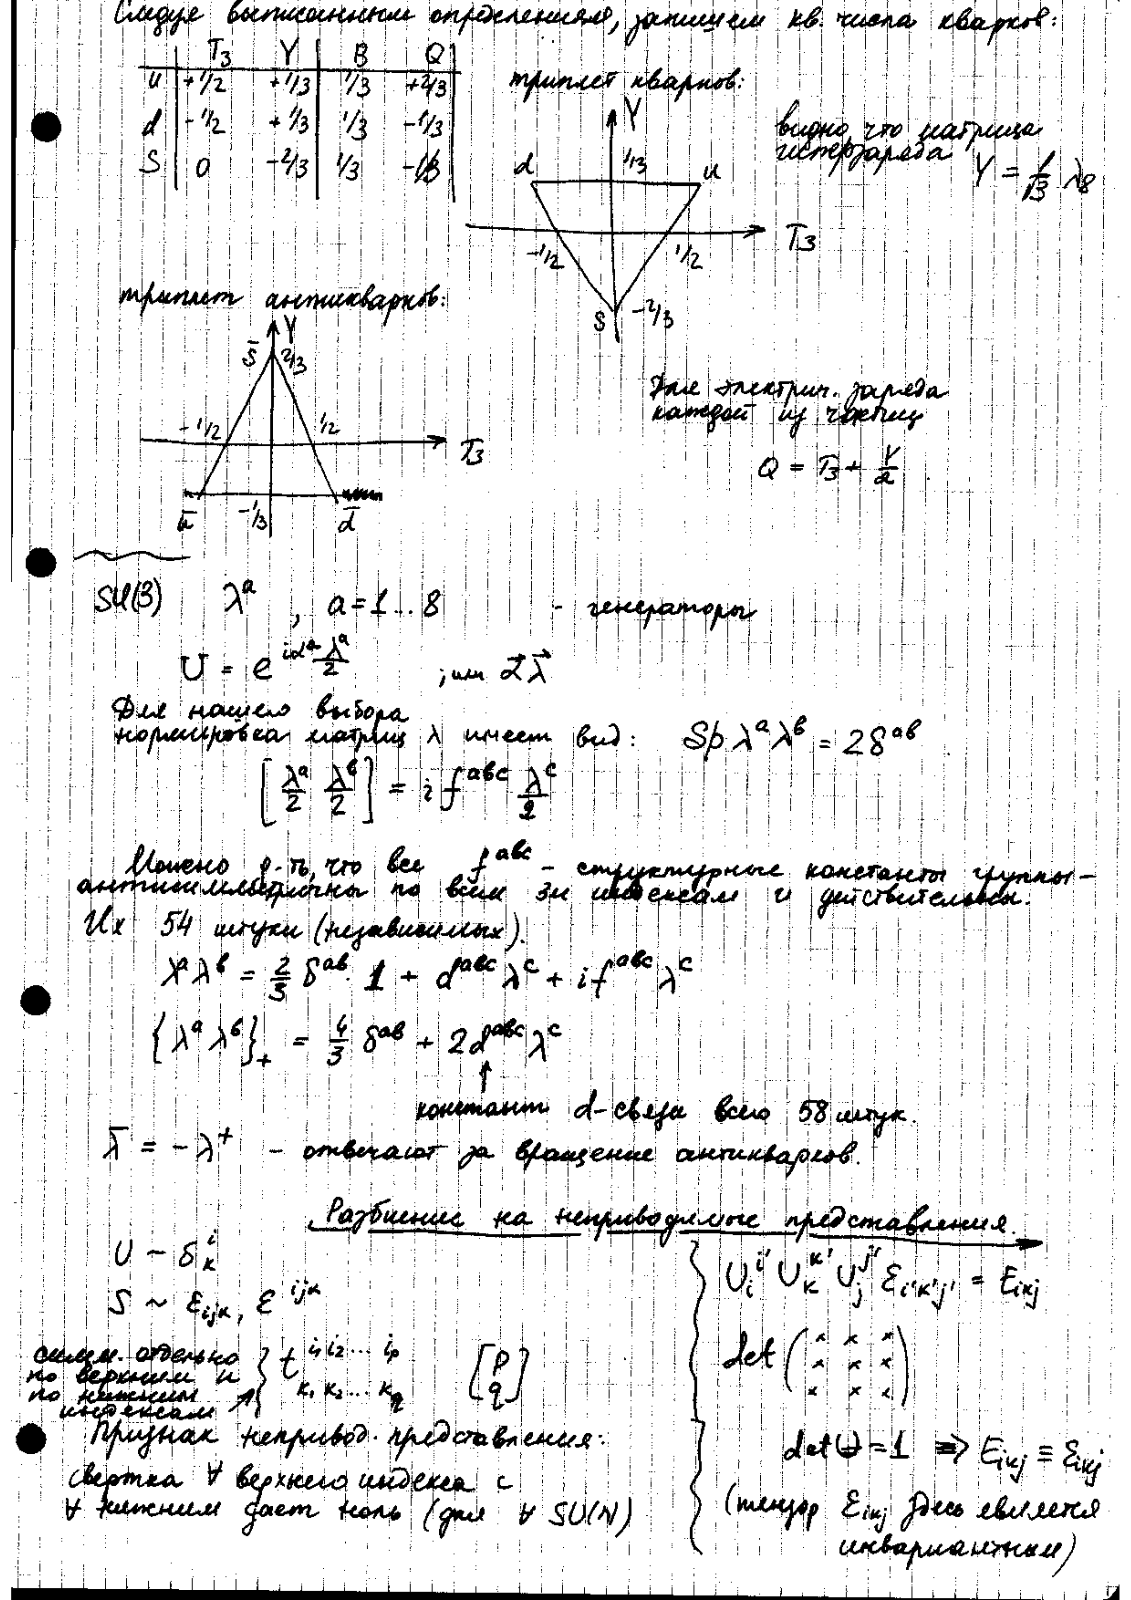 Следуя выписанным определениям, запишем кв. числа кварков:
T₃ Y B Q
u +1/2 +1/3 1/3 +2/3
d -1/2 +1/3 1/3 -1/3
S 0 -2/3 1/3 -1/3
триплет кварков:
Y
d 1/3 u
-1/2 1/2 T₃
S -2/3
видно, что матрица
гиперзаряда Y = 1/√3 λ₈
триплет антикварков:
Y
s̄ 2/3
-1/2 1/2 T₃
ū -1/3 d̄
Для электрич. заряда
каждой из частиц
Q = T₃ + Y/2
SU(3) λᵃ , a=1...8 - генераторы
U = e^{iαᵃ λᵃ/2} ; или α⃗λ⃗
Для нашего выбора
нормировка матриц λ имеет вид: Sp λᵃλᵇ = 2δᵃᵇ
[λᵃ/2 λᵇ/2] = i fᵃᵇᶜ λᶜ/2
Можно д-ть, что все fᵃᵇᶜ - структурные константы группы -
антисимметричны по всем 3м индексам и действительны.
Их 54 штуки (независимых).
λᵃλᵇ = 2/3 δᵃᵇ 1 + dᵃᵇᶜ λᶜ + i fᵃᵇᶜ λᶜ
{λᵃ λᵇ}₊ = 4/3 δᵃᵇ + 2dᵃᵇᶜ λᶜ
констант d-связи всего 58 штук.
λ̄ = -λ⁺ - отвечают за вращение антикварков.
Разбиение на неприводимые представления.
U ~ δⁱₖ
S ~ ε_{ijk}, ε^{ijk}
симм. отдельно
по верхним и
по нижним
индексам
t^{i₁ i₂ ... iₚ}_{k₁ k₂ ... k_q} [p q]
Признак непривод. представления:
свертка ∀ верхнего индекса с
∀ нижним дает ноль (для ∀ SU(N))
U_i^{i'} U_k^{k'} U_j^{j'} ε_{i'k'j'} = E_{ikj}
det (x x x
x x x
x x x)
det U = 1 => E_{ikj} ≡ ε_{ikj}
(тензор ε_{ikj} здесь является
инвариантным)